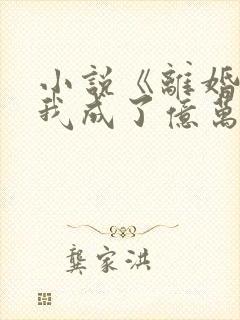 小說《離婚
我成了億萬
龔家洪